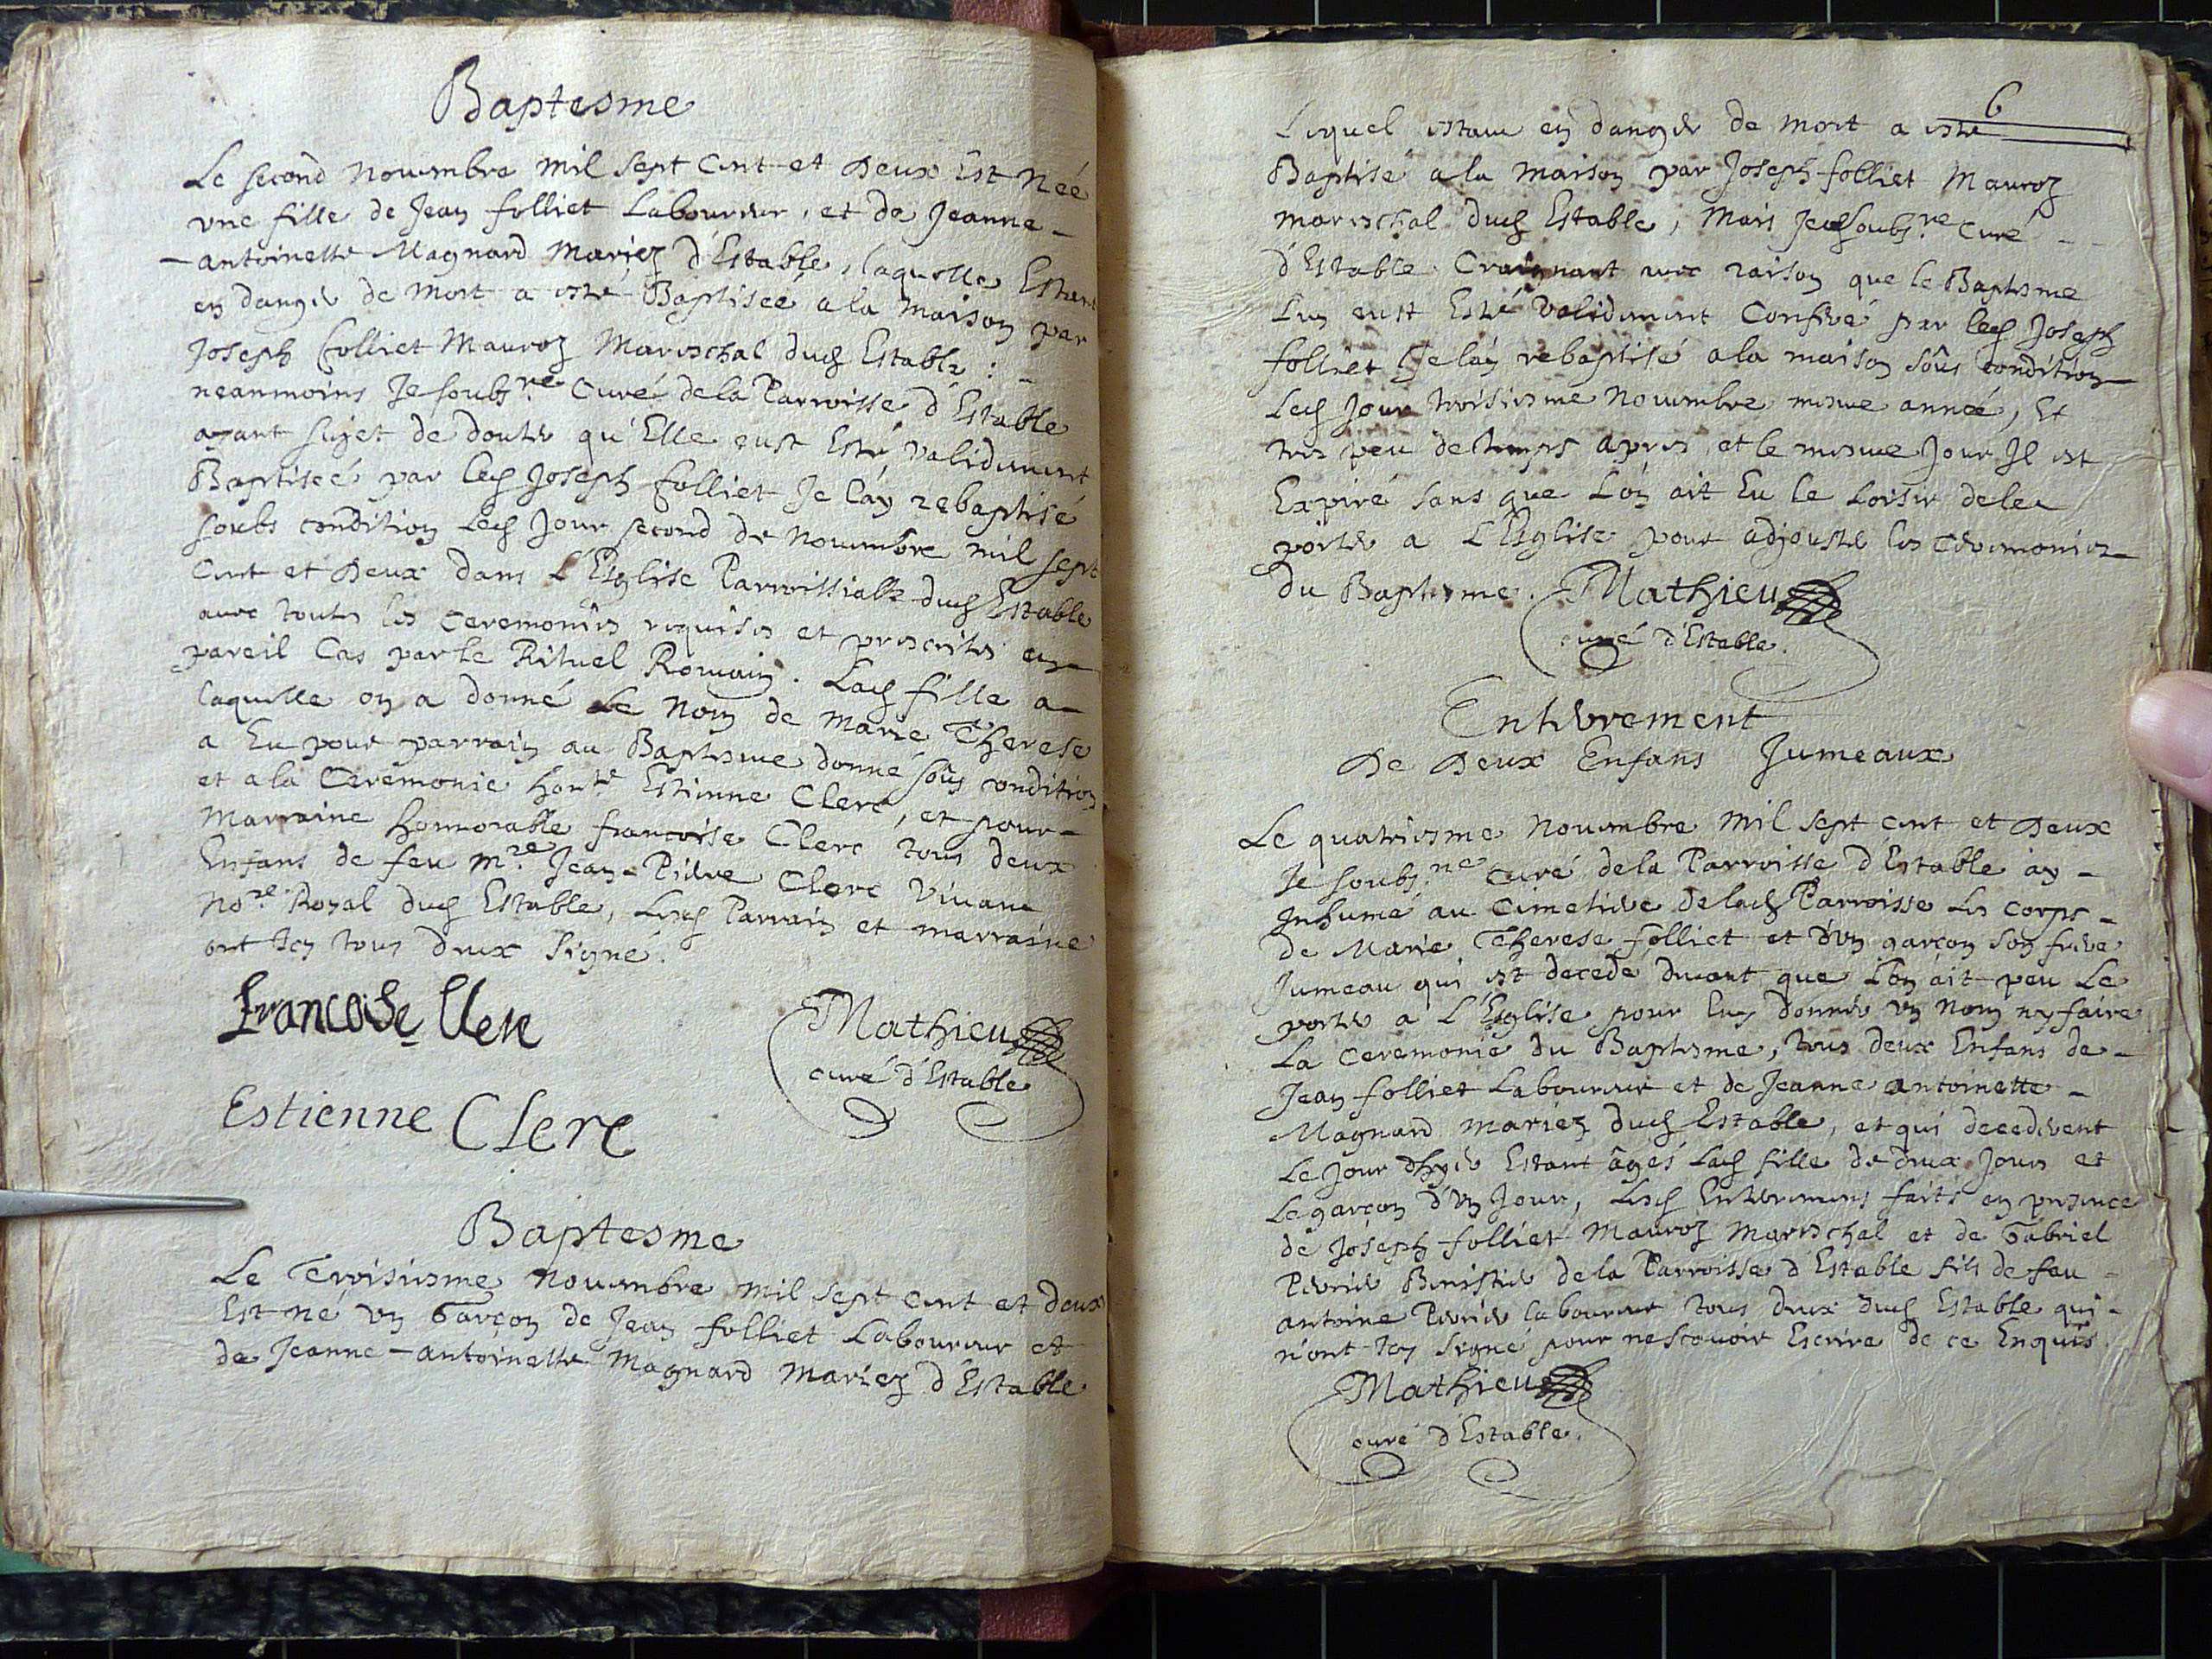 Baptesme
Le second Nouembre mil sept cent et Deux Est Neé
vne fille de Jean folliet Laboureur, et de Jeanne -
- antoinette Magnard Mariez d'Estable, laquelle Estant
en danger de Mort a esté Baptiseé a la Maison par
Joseph folliet Mauroz Mareschal dud Estable : -
neanmoins Je soubs.né Curé de la Parroisse d'Estable
ayant sujet de douter qu'Elle eust Esté validement
Baptiseé par led Joseph folliet Je l'ay rebaptisé
soubs condition led Jour second de Nouembre mil sept
Cent et Deux dans l'Eglise Parroissialle dud Estable
auec toutes les ceremonies requises et prescrites en
pareil Cas par le Rituel Romain. Lad fille a
laquelle on a donné Le Nom de Marie Therese
a Eu pour parrain au Baptesme donné soûs condition
et a la Ceremonie hon.le Estienne Clerc, et pour -
Marraine honnorable francoise Clerc tous deux
Enfans de feu m.re Jean-Pierre Clerc Viuant
No.re Royal dud Estable, Lesd Parrain et marraine
ont Icy tous deux signé.
francoise Clerc
Mathieu
curé d'Estable
Estienne Clerc
Baptesme
Le Troisiesme Nouembre mil sept cent et deux
Est né vn Garçon de Jean folliet Laboureur et
de Jeanne-antoinette Magnard Mariez d'Estable
6
Lequel estant en danger de mort a esté
Baptisé a la Maison par Joseph folliet Mauroz
mareschal dud Estable, Mais Je soubs.né Curé - -
d'Estable Craignant auec raison que le Baptesme
Luy eust Esté validement Conferé par led Joseph
folliet Je l'ay rebaptisé a la maison soûs condition
Led Jour troisiesme Nouembre mesme anneé, Et
tres peu de temps apres, et le mesme Jour Il est
Expiré sans que L'on ait Eu le Loisir de le
porter a L'Eglise pour adjouster les ceremonies
du Baptesme. Mathieu
curé d'Estable.
Enterrement
De Deux Enfans Jumeaux
Le quatriesme Nouembre mil sept cent et Deux
Je soubs.né Curé de la Parroisse d'Estable ay -
Inhumé au Cimetiere de lad Parroisse Les corps -
de Marie Therese folliet et d'vn garçon son frere
Jumeau qui est decedé deuant que L'on ait peu Le
porter a L'Eglise pour luy donner vn Nom ny faire
La ceremonie du Baptesme, tous deux Enfans de -
Jean folliet Laboureur et de Jeanne antoinette -
Magnard mariez dud Estable, et qui decederent
Le Jour d'hyer Estant âgés Lad fille de deux Jours et
Le garçon d'vn Jour, Lesd Enterremens faits en presence
de Joseph folliet Mauroz Mareschal et de Gabriel
de la Parroisse d'Estable fils de feu -
antoine laboureur tous deux dud Estable qui -
n'ont Icy signé pour ne scauoir Escrire de ce Enquis.
Mathieu
curé d'Estable.